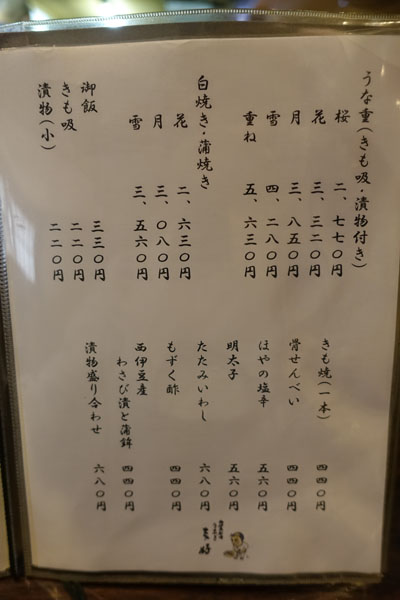 うな重(きも吸・漬物付き)
桜 二、七七〇円
花 三、三二〇円
月 三、八五〇円
雪 四、二八〇円
重ね 五、六三〇円
白焼き・蒲焼き
花 二、六三〇円
月 三、〇八〇円
雪 三、五六〇円
御飯 三三〇円
きも吸 二二〇円
漬物(小) 二二〇円
きも焼(一本) 四四〇円
骨せんべい 四四〇円
ほやの塩辛 五六〇円
明太子 五六〇円
たたみいわし 六八〇円
もずく酢 四四〇円
西伊豆産
わさび漬と蒲鉾 四四〇円
漬物盛り合わせ 六八〇円